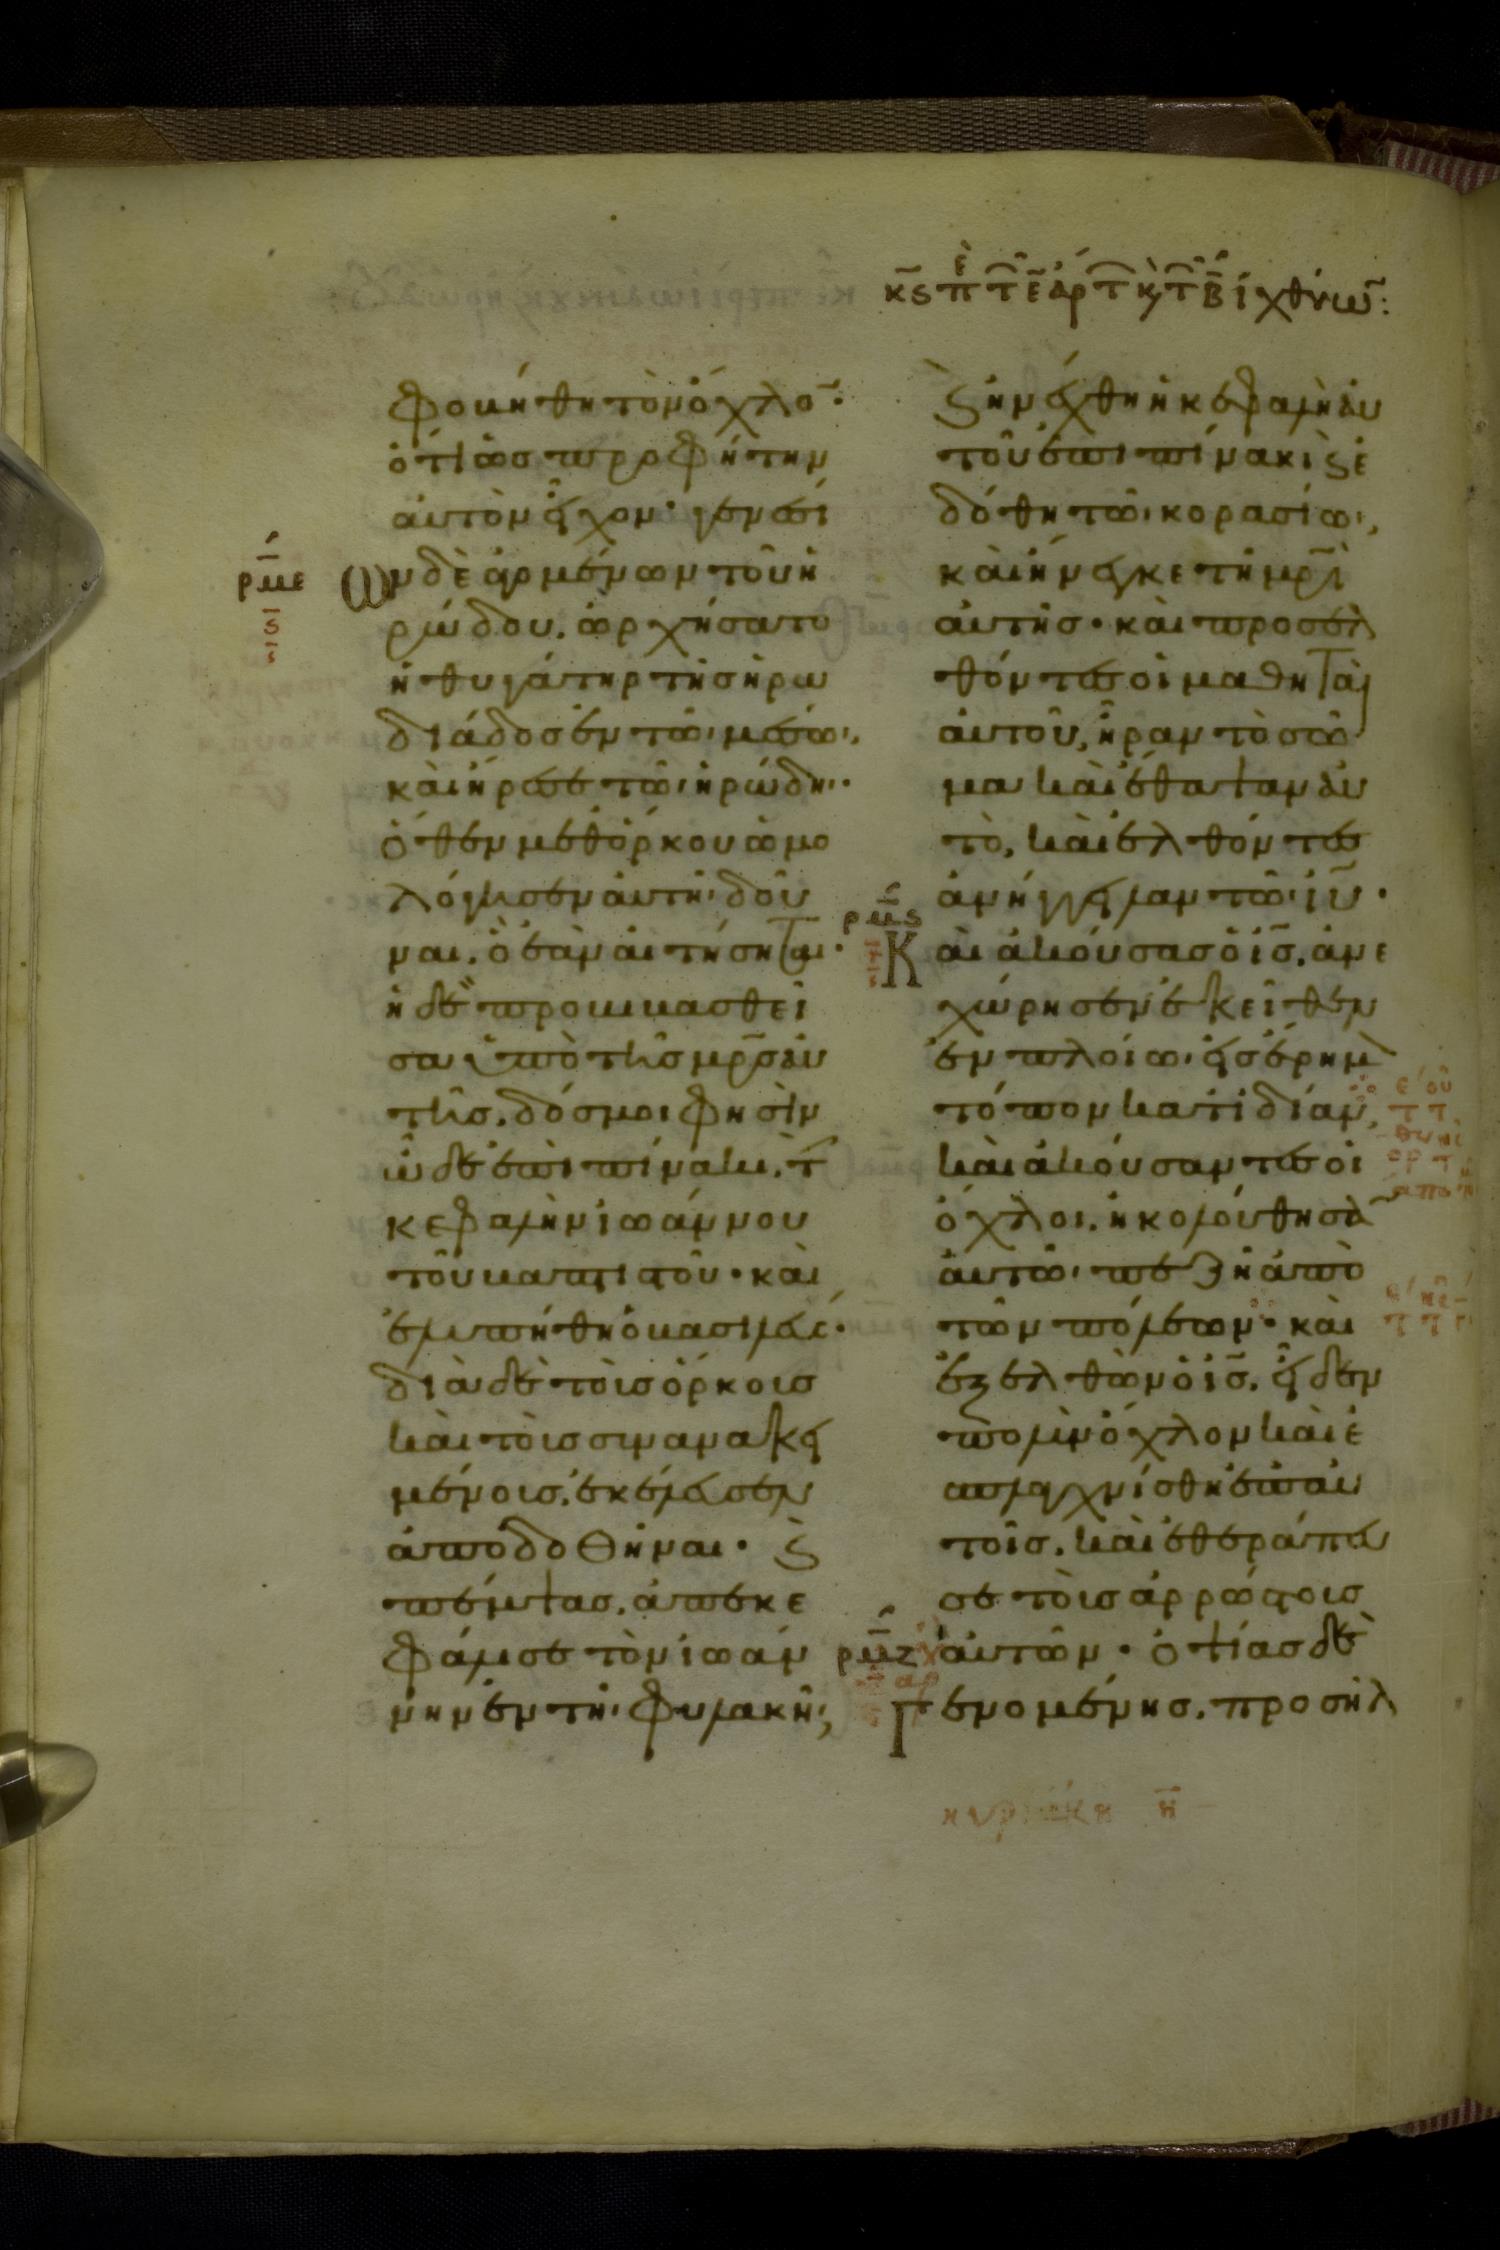 κ̅ς πὲ τ̑ ε̅ ἄρτ κ̀ τ̑ β̅ ἰχθύω̅:
φοβήθη τὸν ὄχλο̅·
ὅτι ὡσ προφήτην
αὐτὸν εἶχον· γενεσί
ρμε
ς̅
ων δὲ ἀγομένων τοῦ ἡ
ρώδου, ὠρχήσατο
ἡ θυγάτηρ τῆσ ἡρω
διάδοσ ἐν τῶ μέσω,
καὶ ἤρεσε τῶ ἡρώδη·
ὅθεν μεθὅρκου ὡμο
λόγησεν αὐτῆ δοῦ
ναι, ὃ ἐὰν αἰτήσηται·
ἡ δὲ προβιβασθεῖ
σα ὑπὸ τῆσ μρ̅σ αὐ
τῆσ, δόσ μοι φησὶν
ὧδε ἐπὶ πίνακι, τ̀
κεφαλὴν ἰωάννου
τοῦ βαπτιστοῦ· καὶ
ἐλυπήθη ὁ βασιλεύσ·
διὰ δὲ τοὺσ ὅρκουσ
καὶ τοὺσ συνανακει
μένουσ, ἐκέλευσεν
ἀποδοθῆναι· ϛ̀
πέμψασ, ἀπεκε
φάλισε τὸν ἰωάν
νην ἐν τῆ φυλακῆ,
ϛ̀ ἠνέχθη ἡ κεφαλὴ αὐ
τοῦ ἐπὶ πίνακι ϛ̀ ἐ
δόθη τῶ κορασίω,
καὶ ἤνεγκε τῆ μρ̅ὶ
αὐτῆσ· καὶ προσελ
θόντεσ οἱ μαθηταὶ
αὐτοῦ, ἦραν τὸ σῶ
μα καὶ ἔθαψαν αὐ
τὸ, καὶ ἐλθόντεσ
ἀπήγγειλαν τῶ ἰῦ·
ρμς
Καὶ ἀκούσασ ὁ ἰσ̅, ἀνε
χώρησεν ἐκεῖθεν
ἐν πλοίω εἰσ ἔρημ̀
τόπον κατιδίαν,
καὶ ἀκούσαντεσ οἱ
ὄχλοι, ἠκολούθησα̅
αὐτῶ πεζῆ ἀπὸ
τῶν πόλεων· καὶ
ἐξελθὼν ὁ ἰσ̅, εἶδεν
πολὺν ὄχλον καὶ ἐ
σπλαγχνίσθη ἐπαὐ
τοῖσ, καὶ ἐθεράπευ
σε τοὺσ ἀρρώστουσ
ρμζ
αὐτῶν· ὀψίασ δὲ
Γενομένησ, προσῆλ
κυριακη η̅